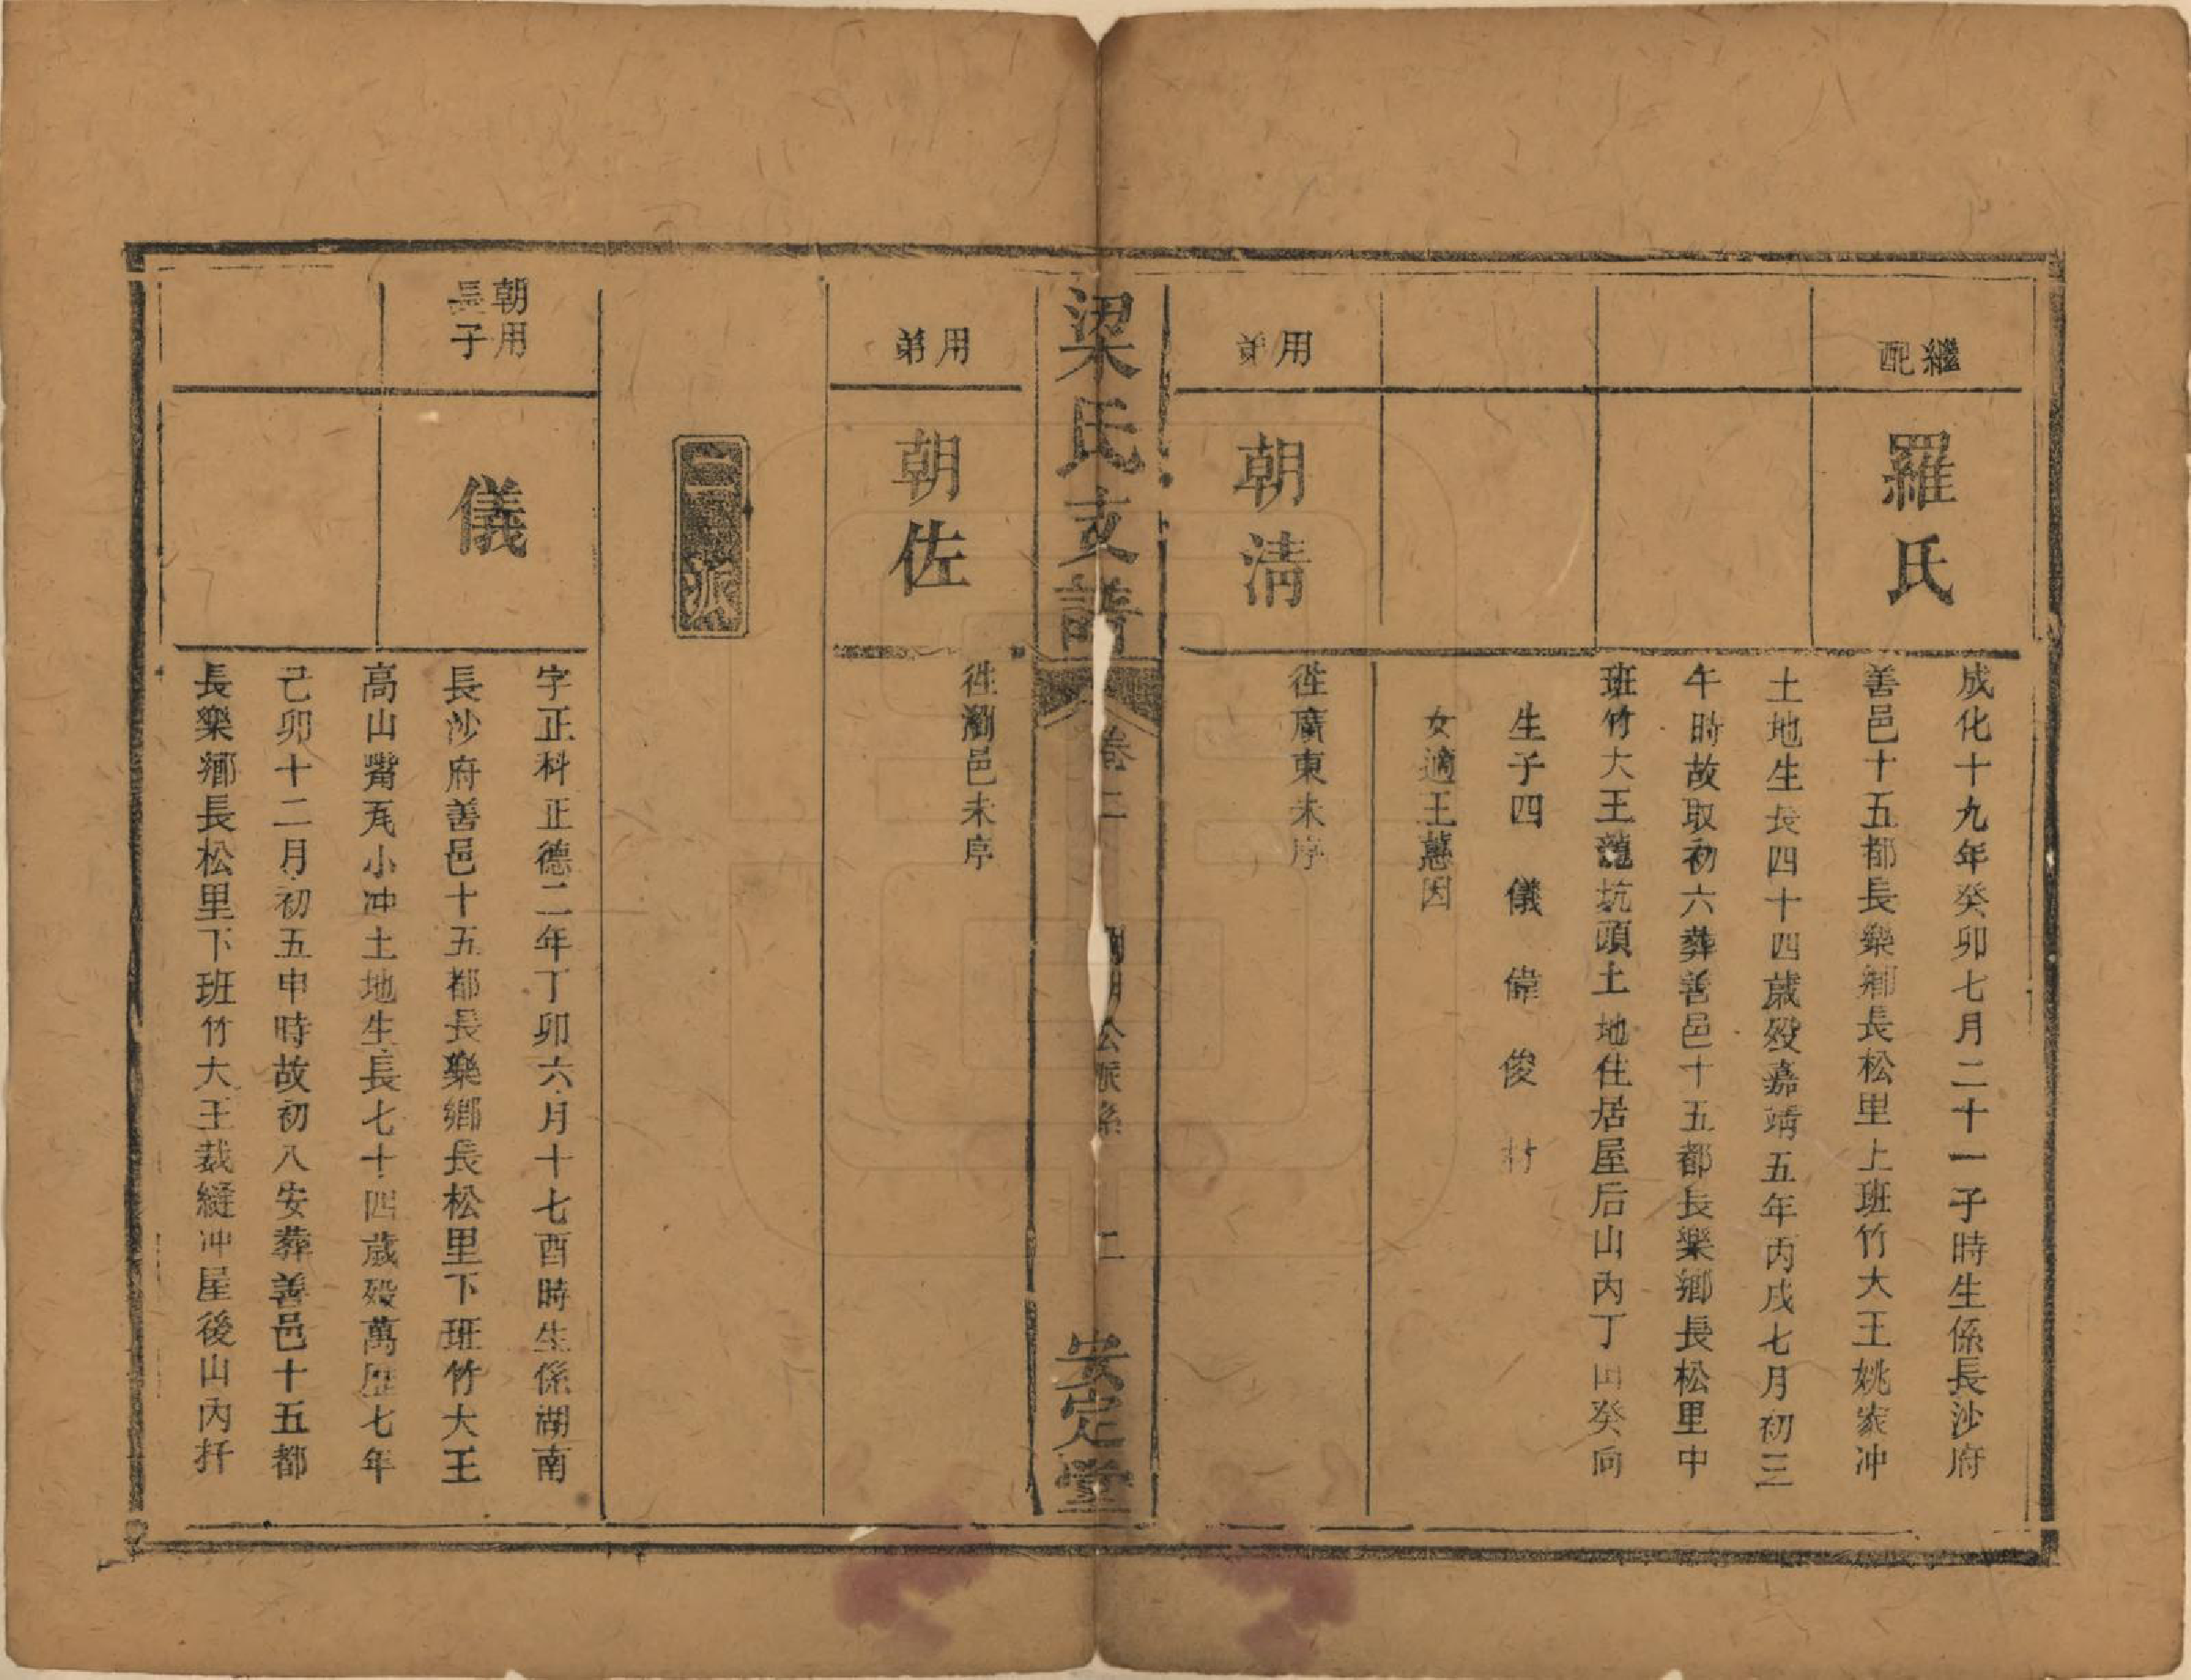 繼配
羅氏
成化十九年癸卯七月二十一子時生係長沙府
善邑十五都長樂鄉長松里上班竹大王姚家冲
土地生長四十四歲殁嘉靖五年丙戌七月初三
午時故取初六葬善邑十五都長樂鄉長松里中
班竹大王龍坑頭土地住居屋后山內丁山癸向
生子四 儀 偉 俊
女適王蕙因
用弟
朝清
徃廣東未序
梁氏支譜
卷二
朝用公派系
二
安定堂
用弟
朝佐
徃瀏邑未序
二派
朝用
長子
儀
字正科正德二年丁卯六月十七酉時生係湖南
長沙府善邑十五都長樂鄉長松里下班竹大王
高山嘴瓦小冲土地生長七十四歲殁萬歷七年
己卯十二月初五申時故初八安葬善邑十五都
長樂鄉長松里下班竹大王裁縫冲屋後山內扦